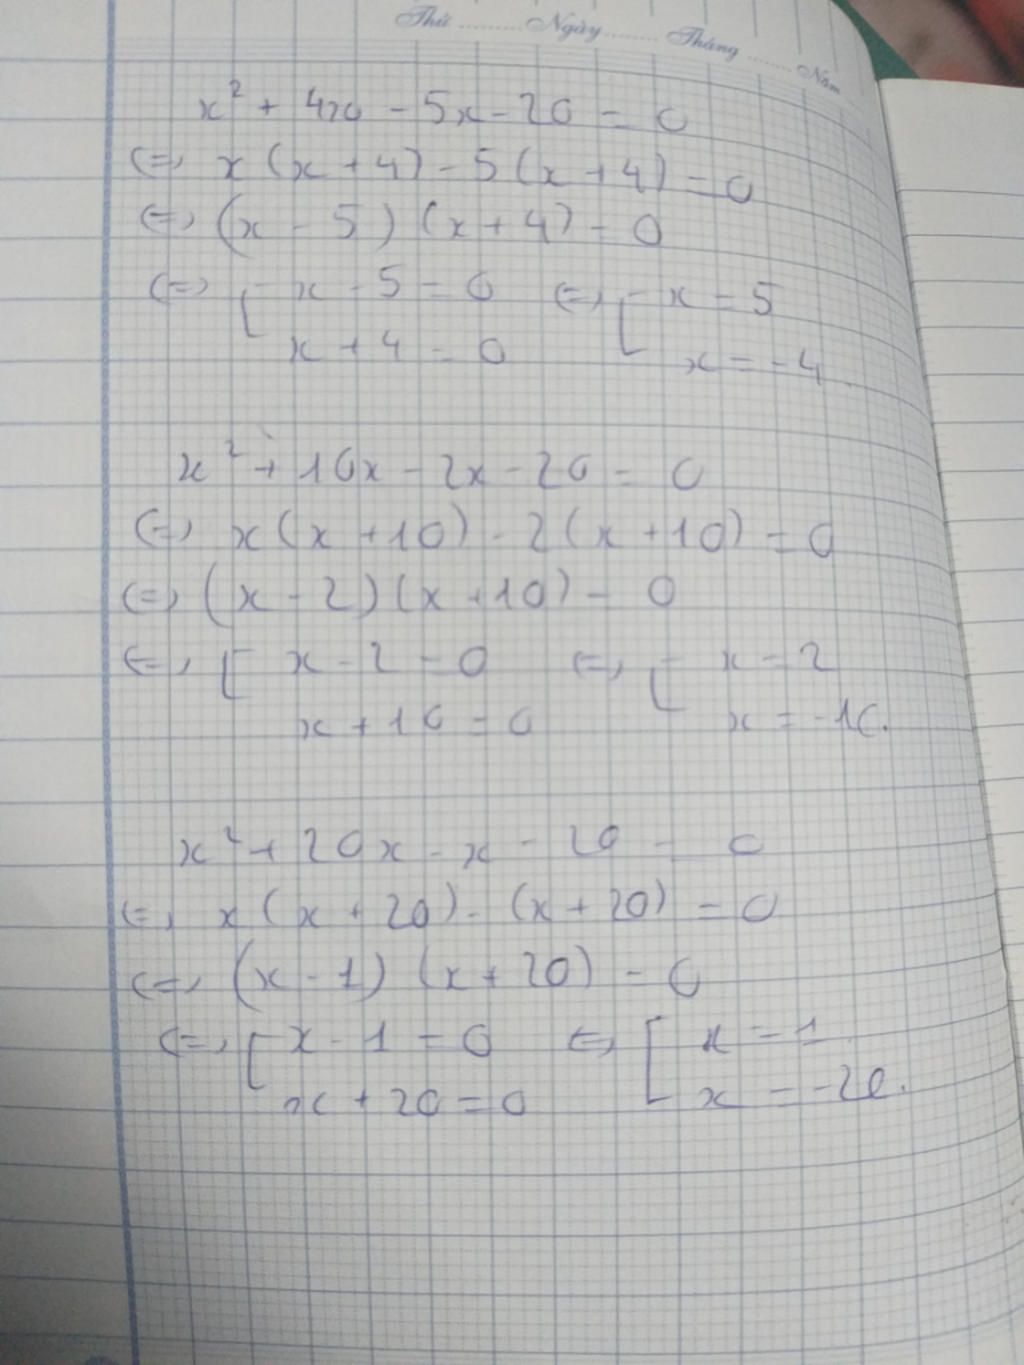 Thứ ......... Ngày ........ Tháng ....... Năm
x² + 4x - 5x - 20 = 0
(=) x (x + 4) - 5 (x + 4) = 0
(=) (x - 5) (x + 4) = 0
(=) [ x - 5 = 0 (=) [ x = 5
x + 4 = 0 x = -4
x² + 10x - 2x - 20 = 0
(=) x (x + 10) - 2 (x + 10) = 0
(=) (x - 2) (x + 10) = 0
(=) [ x - 2 = 0 (=) [ x = 2
x + 10 = 0 x = -10.
x² + 20x - x - 20 = 0
(=) x (x + 20) - (x + 20) = 0
(=) (x - 1) (x + 20) = 0
(=) [ x - 1 = 0 (=) [ x = 1
x + 20 = 0 x = -20.